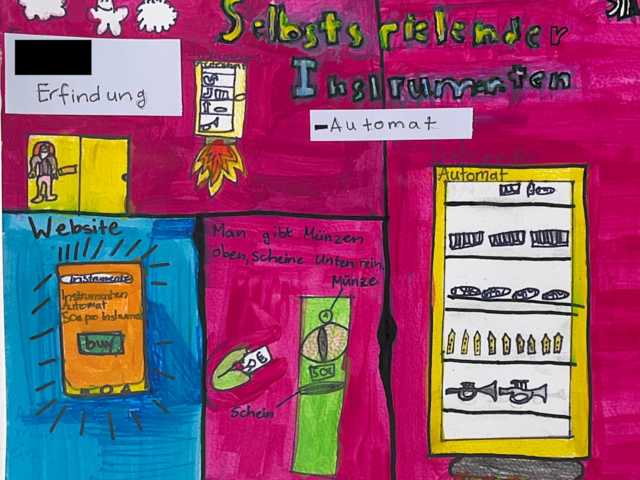 Selbstspielender
Instrumenten
-Automat
Erfindung
Automat
Website
Instrumente
Instrumenten
Automat
50€ pro Instrument
buy
Man gibt Münzen
oben, Scheine unten rein.
Münze
50€
50€
Schein